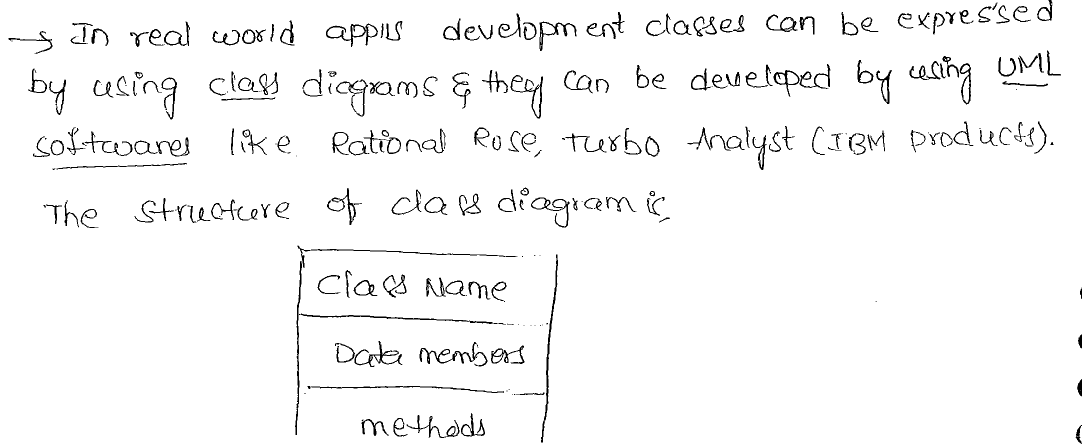 → In real world appls development classes can be expressed
by using class diagrams & they can be developed by using UML
softwares like Rational Rose, Turbo Analyst (IBM products).
The structure of class diagram is
Class Name
Data members
methods